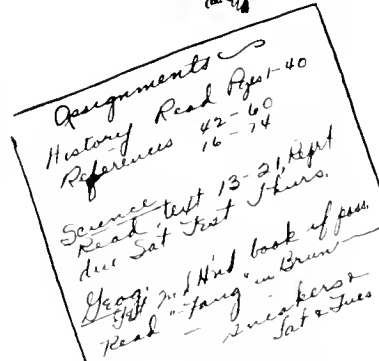 Assignments
History Read Pges 1-40
References 42-60
16-74
Science
Read text 13-21, Reprt
due Sat Test Thurs.
Geog.
2nd H'nd book if poss.
Read "Fang" in Brun
sneakers
Sat & Tues